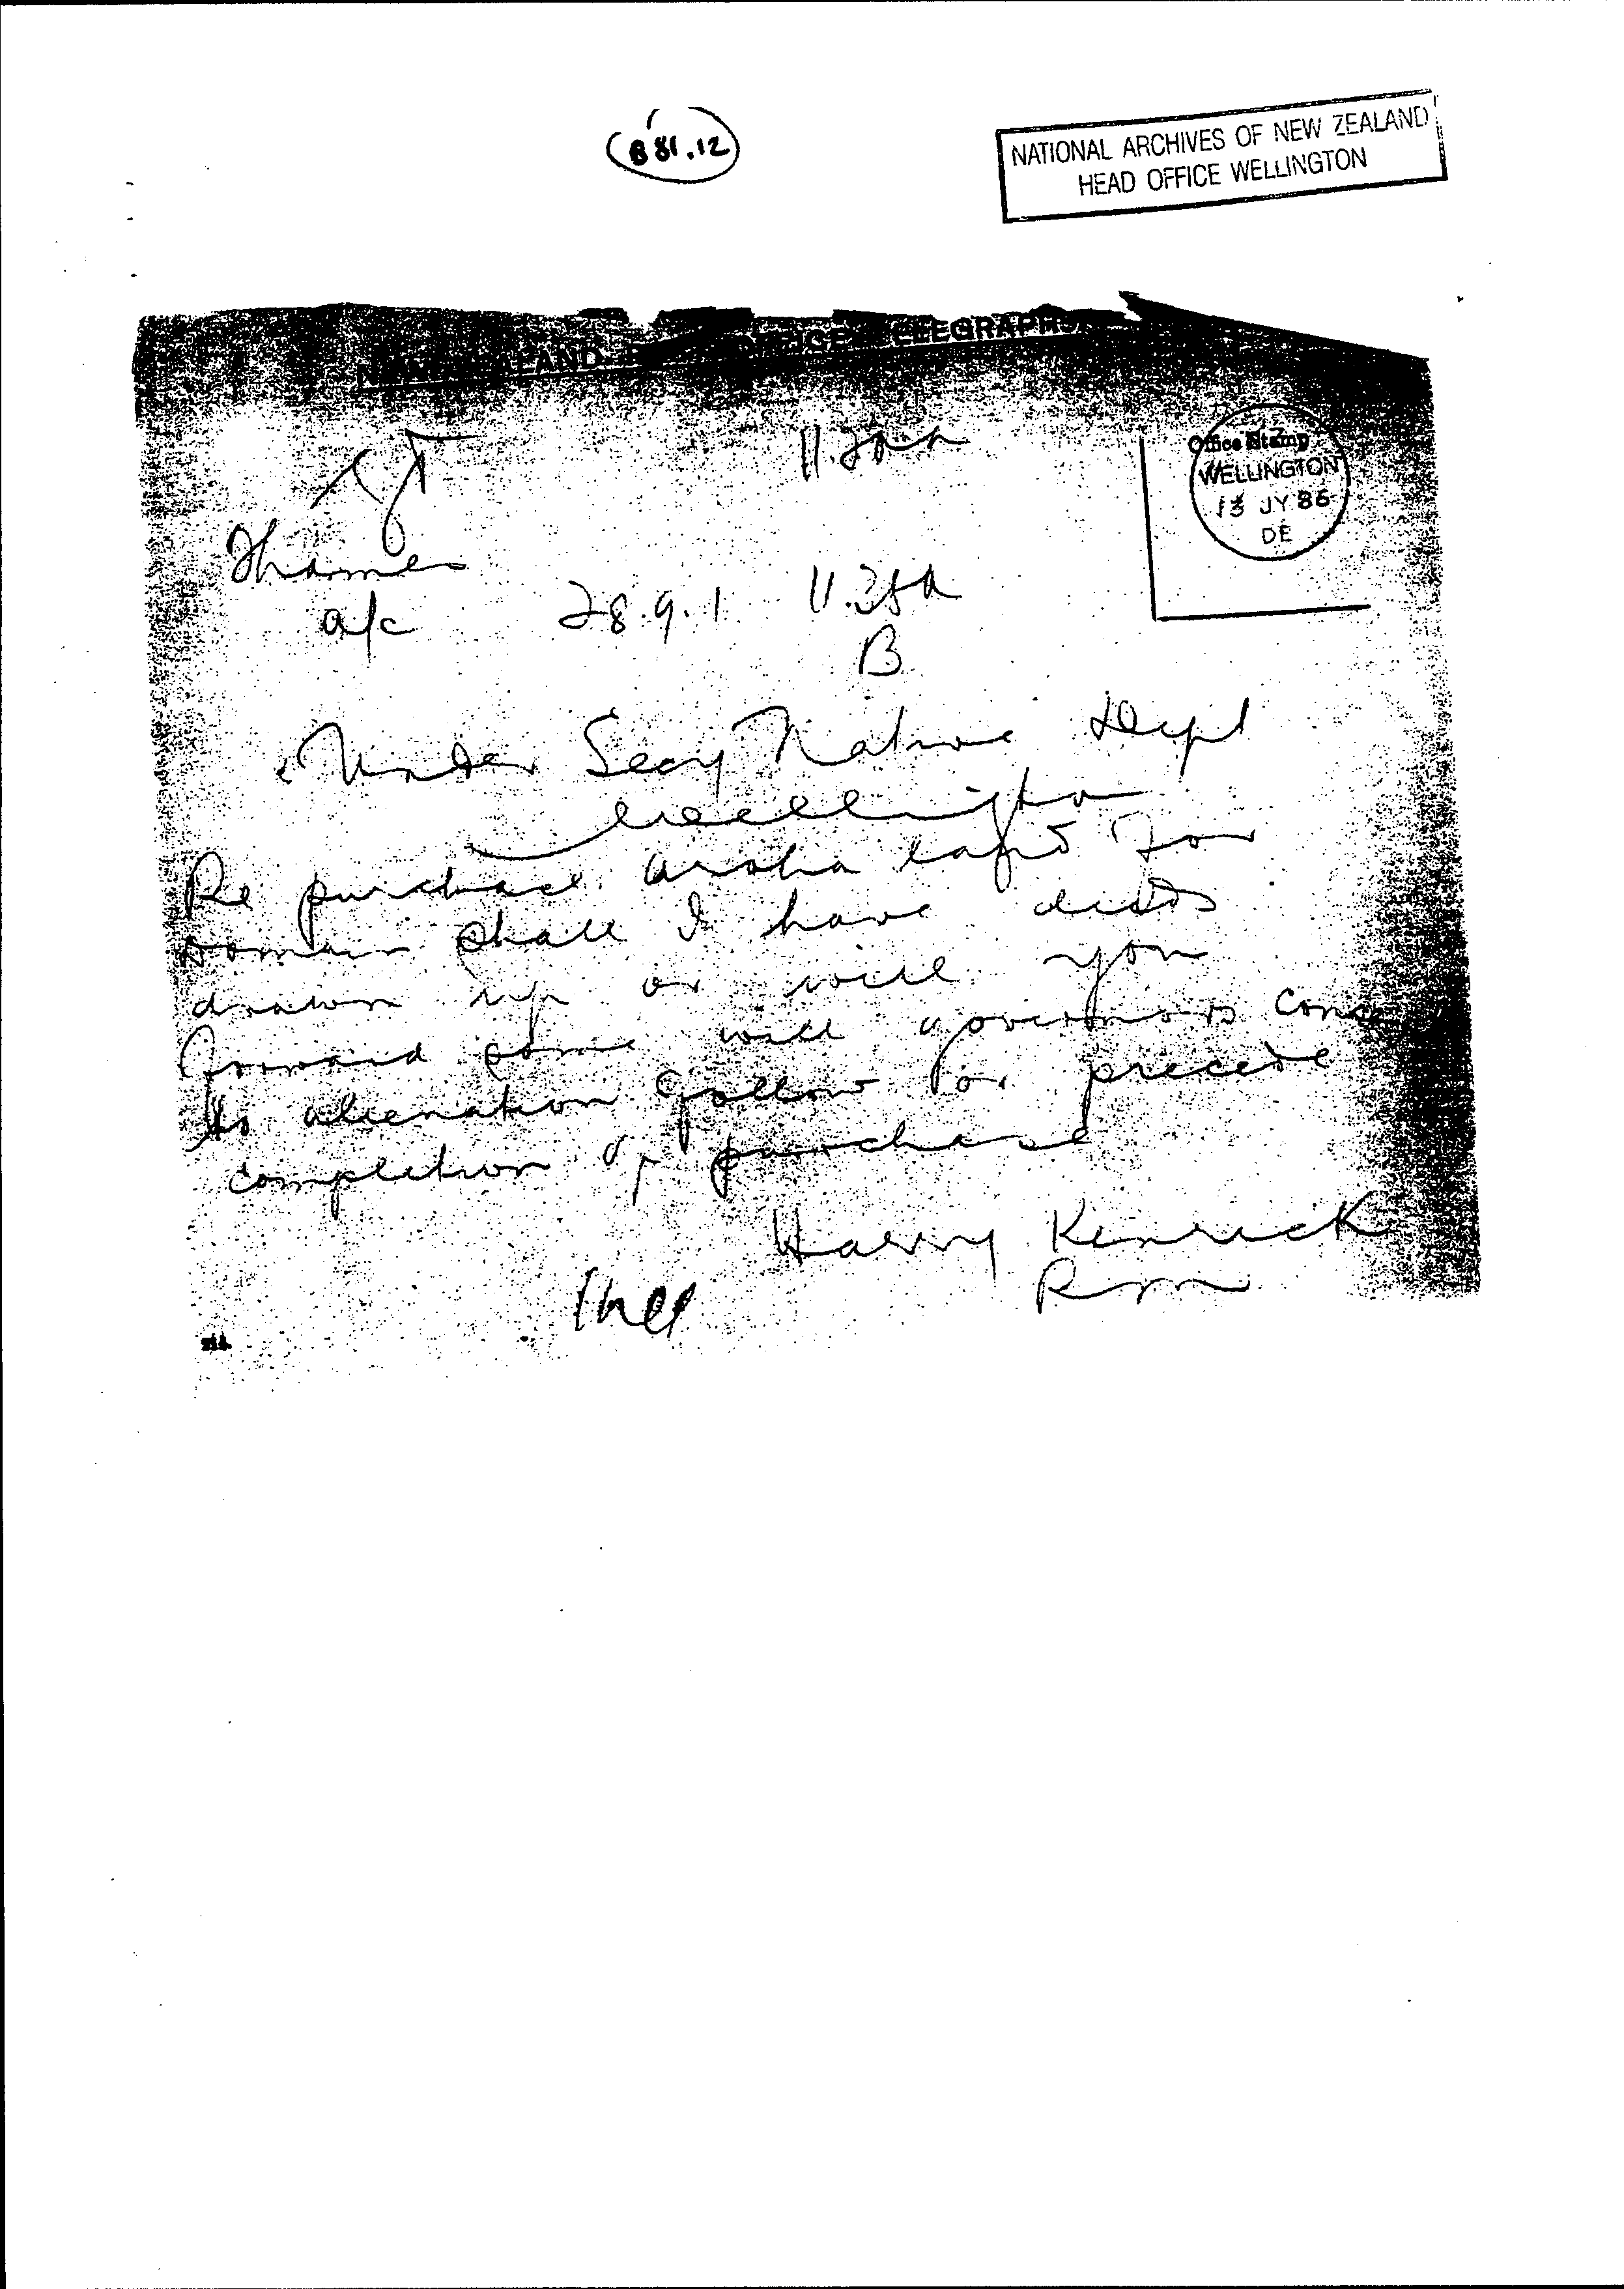 B 81.12
NATIONAL ARCHIVES OF NEW ZEALAND
HEAD OFFICE WELLINGTON
TELEGRAPHS
Office Stamp
WELLINGTON
13 JY 86
DE
Thames
a/c 28.9.1 11.25a
B
Under Secy Native Dept
Wellington
Re purchase aroha land for
Domain shall I have deeds
drawn up or will you
forward some will governors
to alienation follow or precede
completion of purchase
Harry Kenrick
Rm